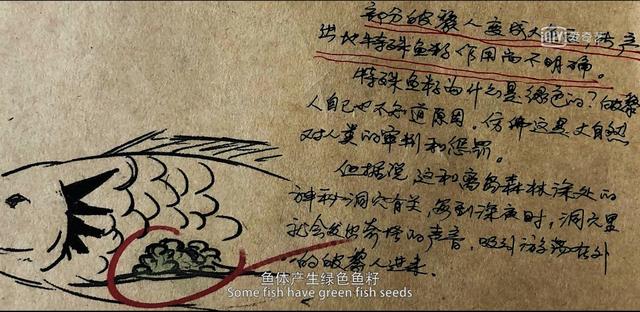 部分人变成大
出地特殊鱼籽作用尚不明确。
特殊鱼籽为什么是绿色的？
人自己也不知道原因，仿佛这是大自然
对人类的审判和惩罚。
但据说这和离岛森林深处的
神秘洞穴有关，每到深夜时，洞穴里
就会发出奇怪的声音，吸引游荡在外
的人进来。
爱奇艺
鱼体产生绿色鱼籽
Some fish have green fish seeds